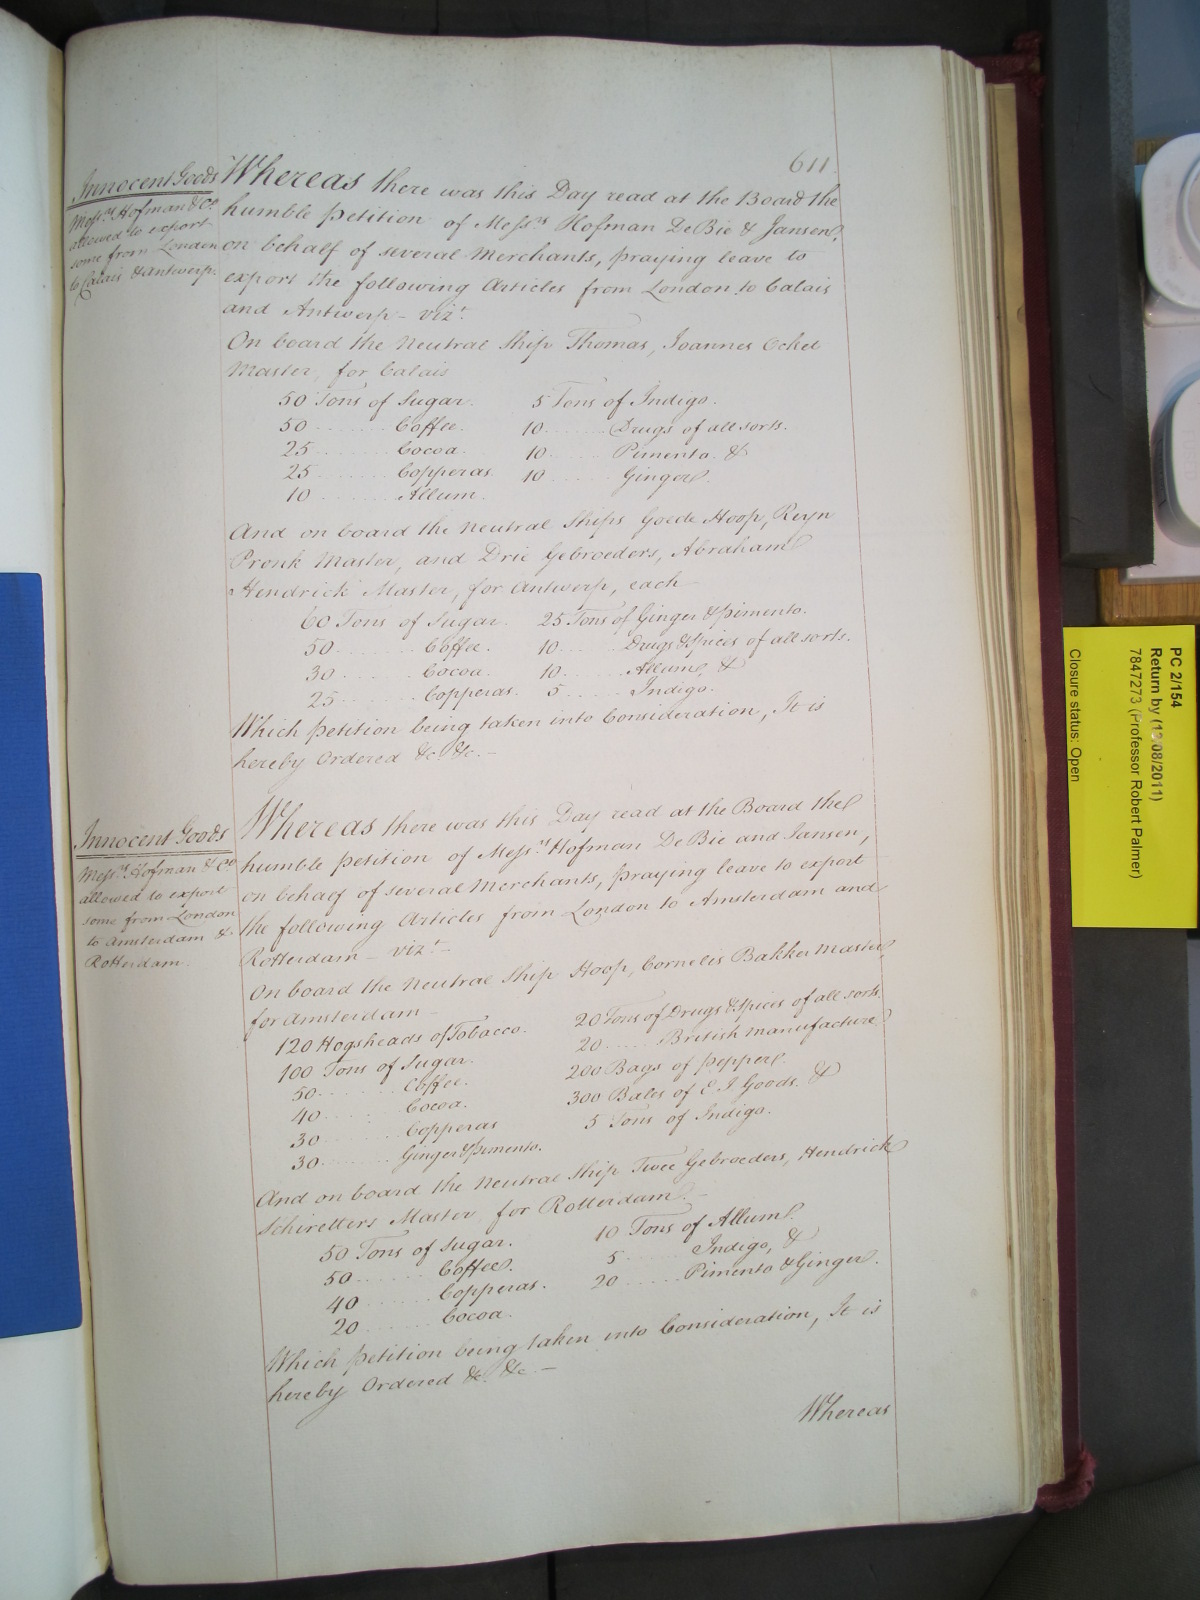 611
Innocent Goods
Mess.rs Hofman & Co.
allowed to export
some from London
to Calais & Antwerp.
Whereas there was this Day read at the Board the
humble Petition of Mess.rs Hofman DeBie & Jansen,
on behalf of several Merchants, praying leave to
export the following Articles from London to Calais
and Antwerp – viz.t
On board the Neutral Ship Thomas, Joannes Ochel
Master, for Calais
50 Tons of Sugar. 5 Tons of Indigo.
50 ........ Coffee. 10 ........ Drugs of all sorts.
25 ........ Cocoa. 10 ........ Pimento. &
25 ........ Copperas 10 ........ Ginger.
10 ........ Allum.
And on board the Neutral Ships Goede Hoop, Reyn
Pronk Master, and Drie Gebroeders, Abraham
Hendrick Master, for Antwerp, each –
60 Tons of Sugar. 25 Tons of Ginger & Pimento.
50 ........ Coffee. 10 ........ Drugs & Spices of all sorts.
30 ........ Cocoa. 10 ........ Allum, &
25 ........ Copperas. 5 ........ Indigo.
Which Petition being taken into Consideration, It is
hereby Ordered &c. &c. –
Innocent Goods
Mess.rs Hofman & Co
allowed to export
some from London
to Amsterdam &
Rotterdam.
Whereas there was this Day read at the Board the
humble Petition of Mess.rs Hofman DeBie and Jansen,
on behalf of several Merchants, praying leave to export
the following Articles from London to Amsterdam and
Rotterdam – viz.t –
On board the Neutral Ship Hoop, Cornelis Bakker Master,
for Amsterdam –
120 Hogsheads of Tobacco. 20 Tons of Drugs & Spices of all sorts.
100 Tons of Sugar. 20 ........ British Manufacture.
50 ........ Coffee. 200 Bags of Pepper.
40 ........ Cocoa. 300 Bales of E I Goods. &
30 ........ Copperas 5 Tons of Indigo.
30 ........ Ginger & Pimento.
And on board the Neutral Ship Twee Gebroeders, Hendrick
Master, for Rotterdam. –
50 Tons of Sugar. 10 Tons of Allum.
50 ........ Coffee. 5 ........ Indigo, &
40 ........ Copperas. 20 ........ Pimento & Ginger.
20 ........ Cocoa.
Which Petition being taken into Consideration, It is
hereby Ordered &c. &c. –
Whereas
PC 2/154
Return by (13/08/2011)
7847273 (Professor Robert Palmer)
Closure status: Open